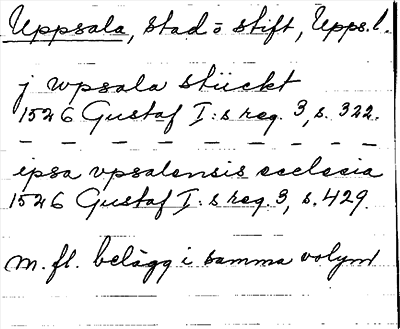 Uppsala, stad o stift, Upps. l.
j wpsala stückt
1526 Gustaf I:s reg. 3, s. 322.
ipsa vpsalensis ecclesia
1526 Gustaf I:s reg. 3, s. 429.
m. fl. belägg i samma volym